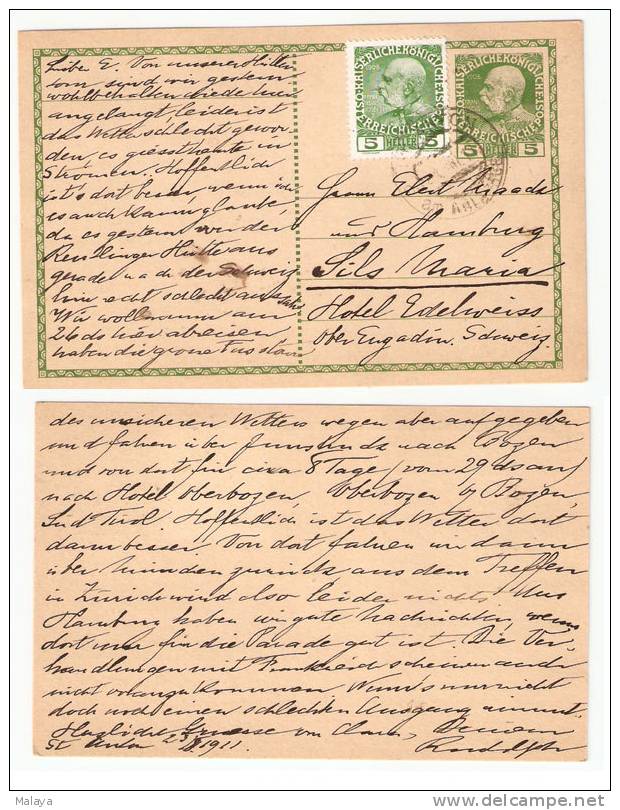 Liebe E. Von unserer Hütten
sind wir gestern
wohlbehalten wieder hier
angelangt, leider ist
das Wetter schlecht gewor
den, es giesst heute in
Strömen. Hoffentlich
ist's dort besser, wenn ich
es auch kaum glaube,
da es gestern von der
Reutlinger Hütte aus
gerade nach der Schweiz
hin recht schlecht aussah
Wir wollten am
26 ds hier abreisen
haben die grosse Fusstour
K.K. OESTERREICHISCHE POST
KAISERLICHE KÖNIGLICHE
5 HELLER 5
5 HELLER 5
ST. ANTON
Herrn
aus Hamburg
Sils Maria
Hotel Edelweiss
Ober Engadin. Schweiz.
des unsicheren Wetters wegen aber aufgegeben
und fahren über Innsbruck nach Bozen
und von dort für circa 8 Tage (vom 29 ds an)
nach Hotel Oberbozen, Oberbozen b/ Bozen,
Süd Tirol. Hoffentlich ist das Wetter dort
dann besser. Von dort fahren wir dann
über München zurück aus dem Treffen
in Zürich wird also leider nichts. Aus
Hamburg haben wir gute Nachrichten, wenns
dort nur für die Parade gut ist. Die Ver
handlungen mit Frankreich scheinen auch
nicht voranzukommen. Wenn's nur nicht
doch noch einen schlechten Ausgang nimmt.
Herzliche Grüsse von Clara, Deinem
St Anton 23/8 1911. Rudolph
Malaya
delcampe.net